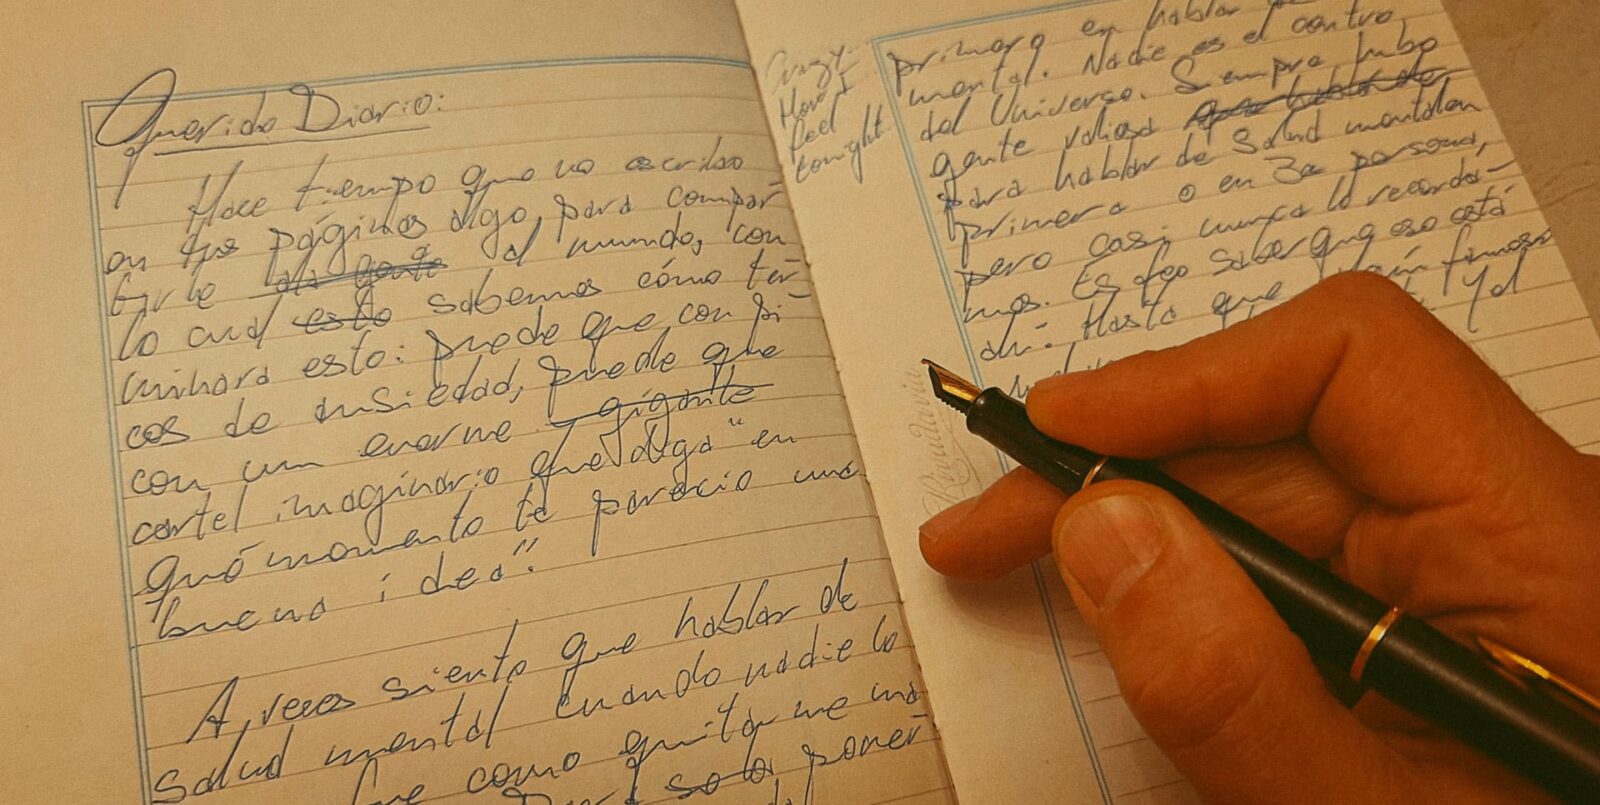 Querido Diario:
Hace tiempo que no escribo
en tus páginas algo, para compar-
tirle a la gente al mundo, con
lo cual esto sabemos cómo ter-
minará esto: puede que con pi-
cos de ansiedad, puede que
con un enorme gigante
cartel imaginario que diga "en
qué momento te pareció una
buena idea".
A veces siento que hablar de
salud mental cuando nadie lo
fue como quitarme una
solo poner
Crazy
How I
feel
tonight
primero en hablar
mental. Nadie es el centro
del Universo. Siempre hubo
gente valiosa que hablo de
para hablar de Salud mental en
primera o en 3a persona,
pero casi nunca lo recorda-
mos. Es feo saber que eso está
ahí. Hasta que algún famoso
Y al
Rivadavia